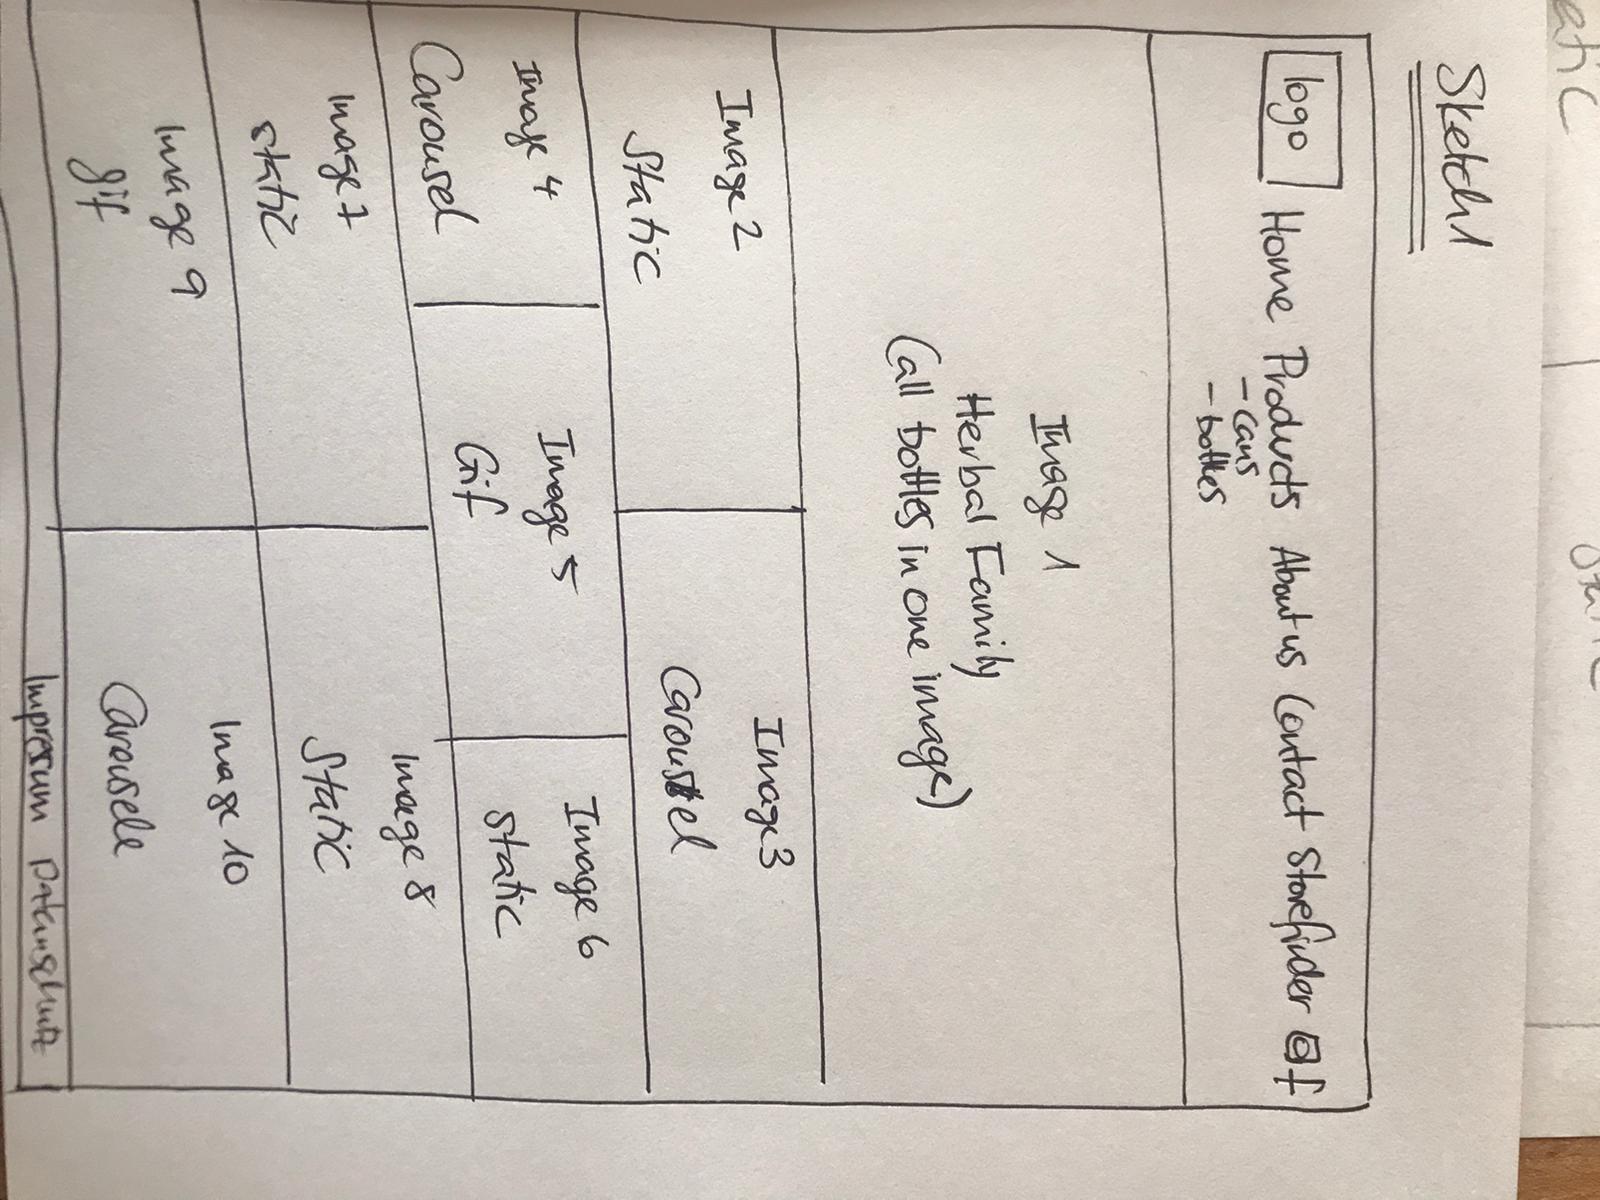 Sketch 1
logo Home Products About us Contact Storefinder f
- cans
- bottles
Image 1
Herbal Family
(all bottles in one image)
Image 2
Static
Image 3
Carousel
Image 4
Carousel
Image 5
Gif
Image 6
static
Image 7
static
Image 8
Static
Image 9
gif
Image 10
Carousele
Impressum Datenschutz
atic